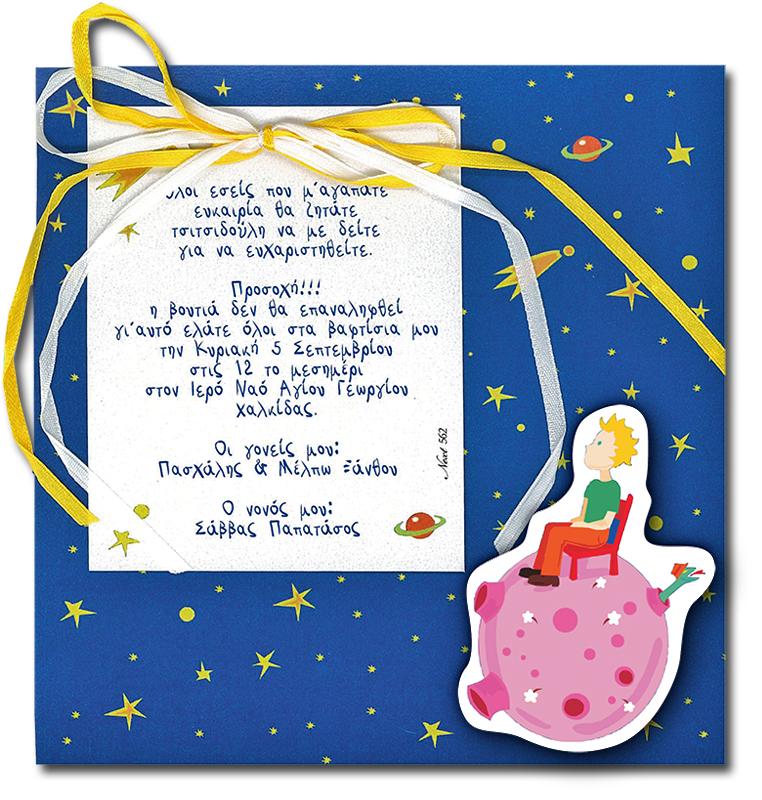 όλοι εσείς που μ'αγαπάτε
ευκαιρία θα ζητάτε
τσιτσιδούλη να με δείτε
για να ευχαριστηθείτε.
Προσοχή!!!
η βουτιά δεν θα επαναληφθεί
γι'αυτό ελάτε όλοι στα βαφτίσια μου
την Κυριακή 5 Σεπτεμβρίου
στις 12 το μεσημέρι
στον Ιερό Ναό Αγίου Γεωργίου
Χαλκίδας.
Οι γονείς μου:
Πασχάλης & Μέλπω Ξάνθου
Ο νονός μου:
Σάββας Παπατάσος
562